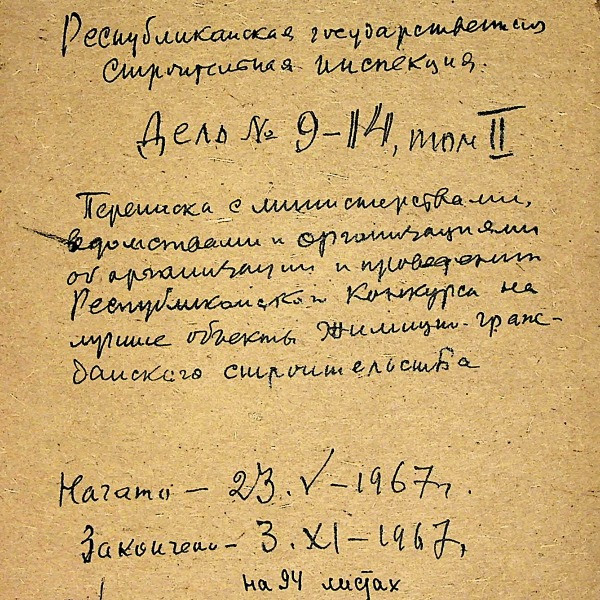 Республиканская государственная
строительная инспекция.
Дело № 9-14, том II
Переписка с министерствами,
ведомствами и организациями
об организации и проведении
Республиканского Конкурса на
лучшие объекты жилищно-граж-
данского строительства
Начато - 23.V-1967г.
Закончено - 3.XI-1967,
на 94 листах